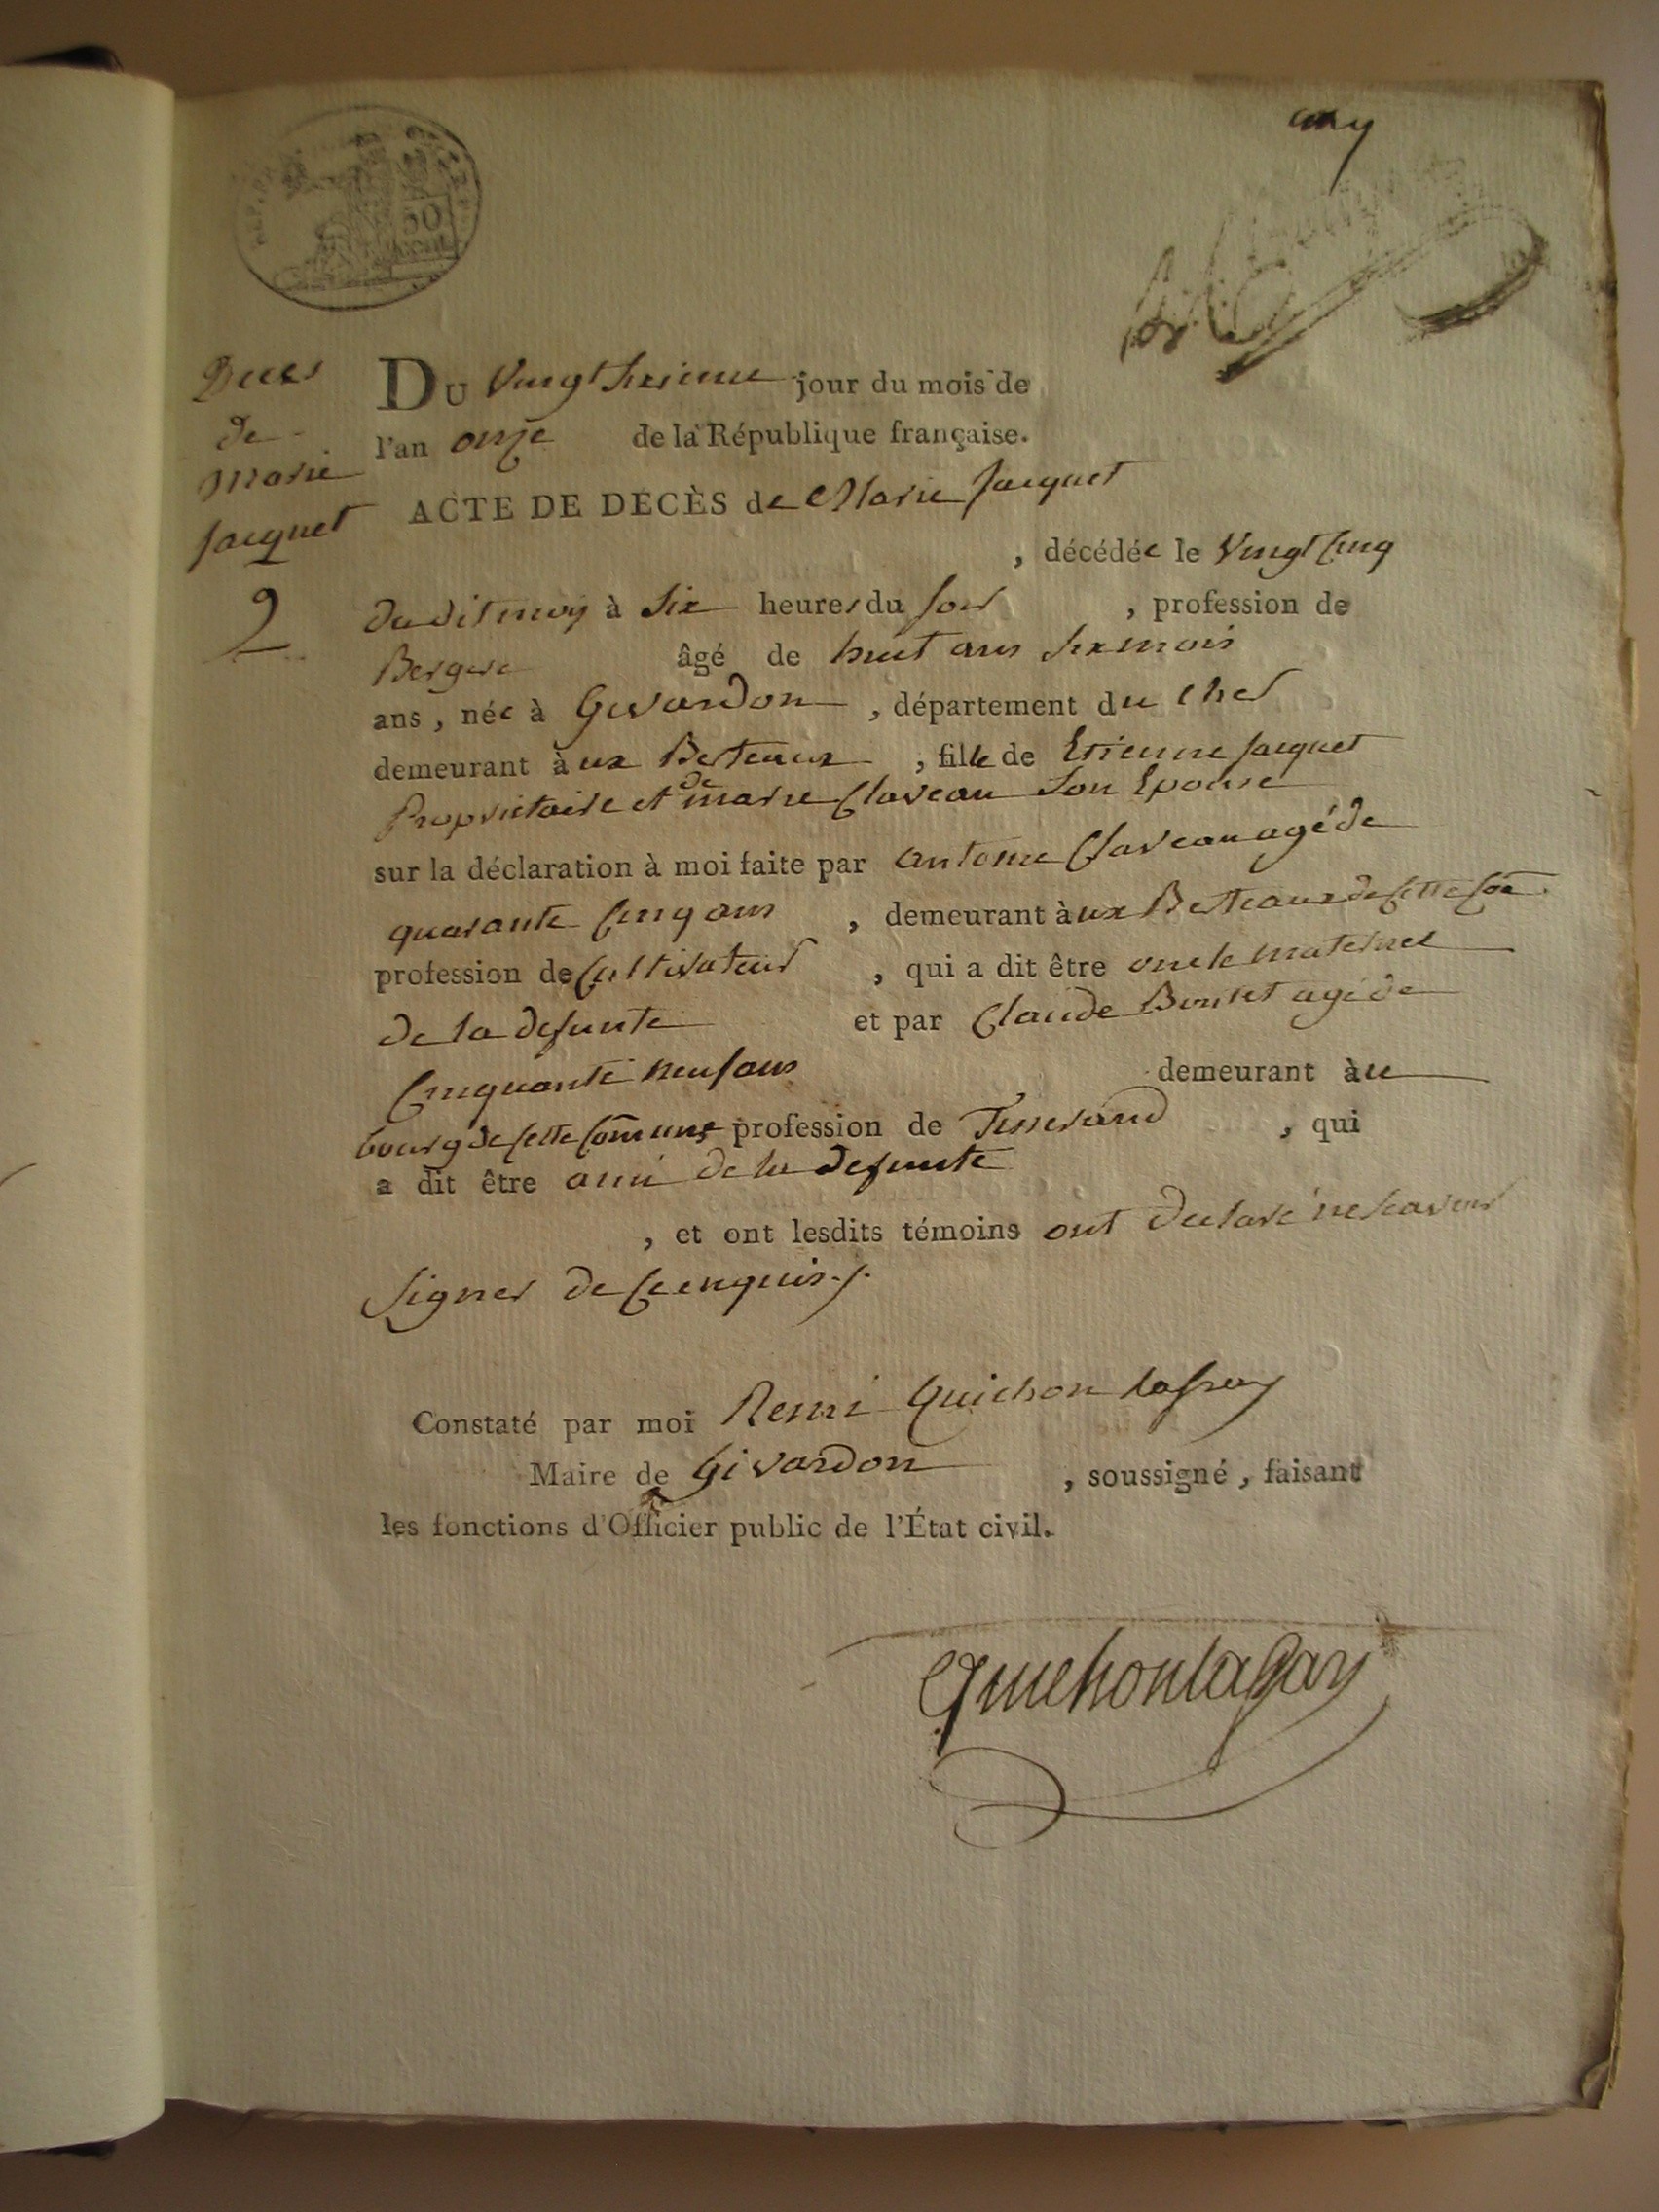 50
Deces
de
marie
jacquet
2
DU Vingt sixieme jour du mois de
l'an onze de la République française.
ACTE DE DÉCÈS de Marie jacquet
, décédée le Vingt cinq
dudit moy à six heures du soir , profession de
Bergere âgé de huit ans six mois
ans , née à Givardon , département du Cher
demeurant à ux Berteaux , fille de Etienne jacquet
Proprietaire et de marie Claveau son Epouse
sur la déclaration à moi faite par antoine Claveau agé de
quarante cinq ans , demeurant à ux Berteaux de cette Coe
profession de Cultivateur , qui a dit être oncle maternel
de la defunte et par Claude agé de
Cinquante neuf ans demeurant à u
bourg de cette Comune profession de Tisserand , qui
a dit être ami de la defunte
, et ont lesdits témoins ont declaré ne scavoir
signer de ce enquis ./.
Constaté par moi Remi Guichon lafray
Maire de Givardon , soussigné , faisant
les fonctions d'Officier public de l'État civil.